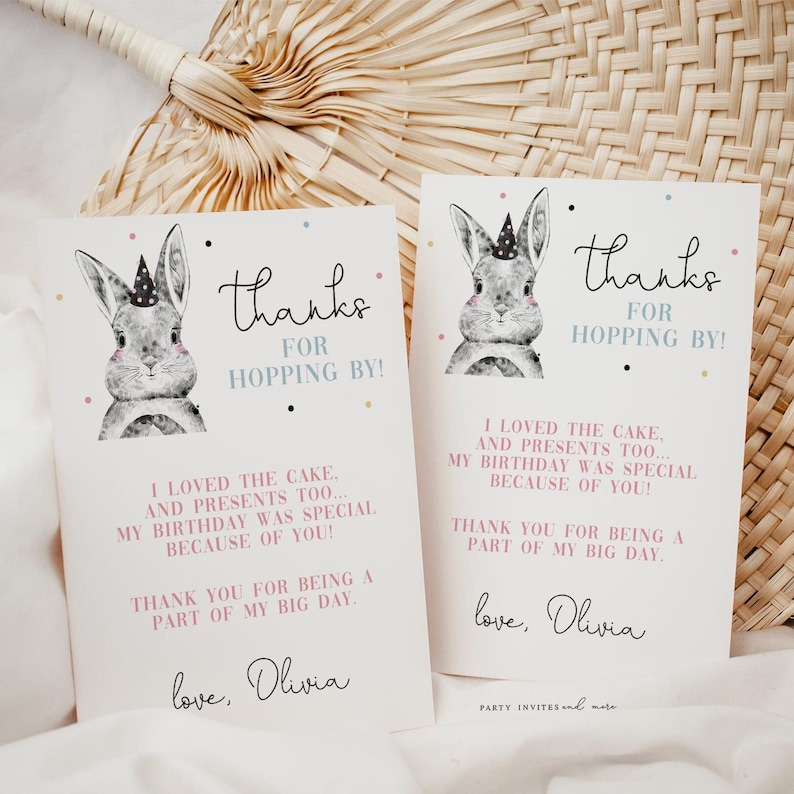 thanks
FOR
HOPPING BY!
I LOVED THE CAKE,
AND PRESENTS TOO...
MY BIRTHDAY WAS SPECIAL
BECAUSE OF YOU!
THANK YOU FOR BEING A
PART OF MY BIG DAY.
love, Olivia
thanks
FOR
HOPPING BY!
I LOVED THE CAKE,
AND PRESENTS TOO...
MY BIRTHDAY WAS SPECIAL
BECAUSE OF YOU!
THANK YOU FOR BEING A
PART OF MY BIG DAY.
love, Olivia
PARTY INVITES and more